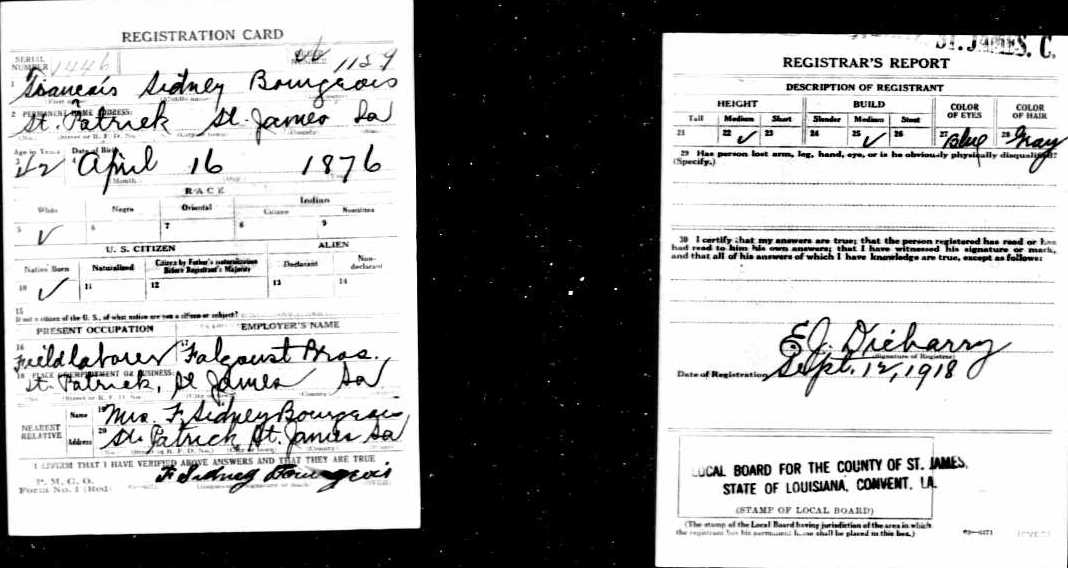 REGISTRATION CARD
SERIAL NUMBER 1446
1159
1 Francois Sidney Bourgeois
2 PERMANENT HOME ADDRESS:
St. Patrick St. James La
Age in Years Date of Birth
3 42 4 April 16 1876
Month
RACE
White Negro Oriental Indian
Citizen Noncitizen
5 ✓ 6 7 8 9
U. S. CITIZEN ALIEN
Native Born Naturalized Citizen by Father's Naturalization Before Registrant's Majority Declarant Non-declarant
10 ✓ 11 12 13 14
15
If not a citizen of the U. S., of what nation are you a citizen or subject?
PRESENT OCCUPATION EMPLOYER'S NAME
16 Field laborer 17 Falgoust Bros.
18 PLACE OF EMPLOYMENT OR BUSINESS:
St. Patrick, St James La
NEAREST RELATIVE
Name 19 Mrs. F. Sidney Bourgeois
Address 20 St. Patrick, St. James La
I AFFIRM THAT I HAVE VERIFIED ABOVE ANSWERS AND THAT THEY ARE TRUE
P. M. G. O.
Form No. 1 (Red)
F Sidney Bourgeois
ST. JAMES. C.
REGISTRAR'S REPORT
DESCRIPTION OF REGISTRANT
HEIGHT BUILD COLOR OF EYES COLOR OF HAIR
Tall Medium Short Slender Medium Stout
21 22 ✓ 23 24 25 ✓ 26 27 Blue 28 Gray
29 Has person lost arm, leg, hand, eye, or is he obviously physically disqualified?
(Specify.)
30 I certify that my answers are true; that the person registered has read or has
had read to him his own answers; that I have witnessed his signature or mark,
and that all of his answers of which I have knowledge are true, except as follows:
E. J. Dicharry
(Signature of Registrar)
Date of Registration Sept. 12, 1918
LOCAL BOARD FOR THE COUNTY OF ST. JAMES,
STATE OF LOUISIANA, CONVENT, LA.
(STAMP OF LOCAL BOARD)
(The stamp of the Local Board having jurisdiction of the area in which
the registrant has his permanent home shall be placed in this box.)